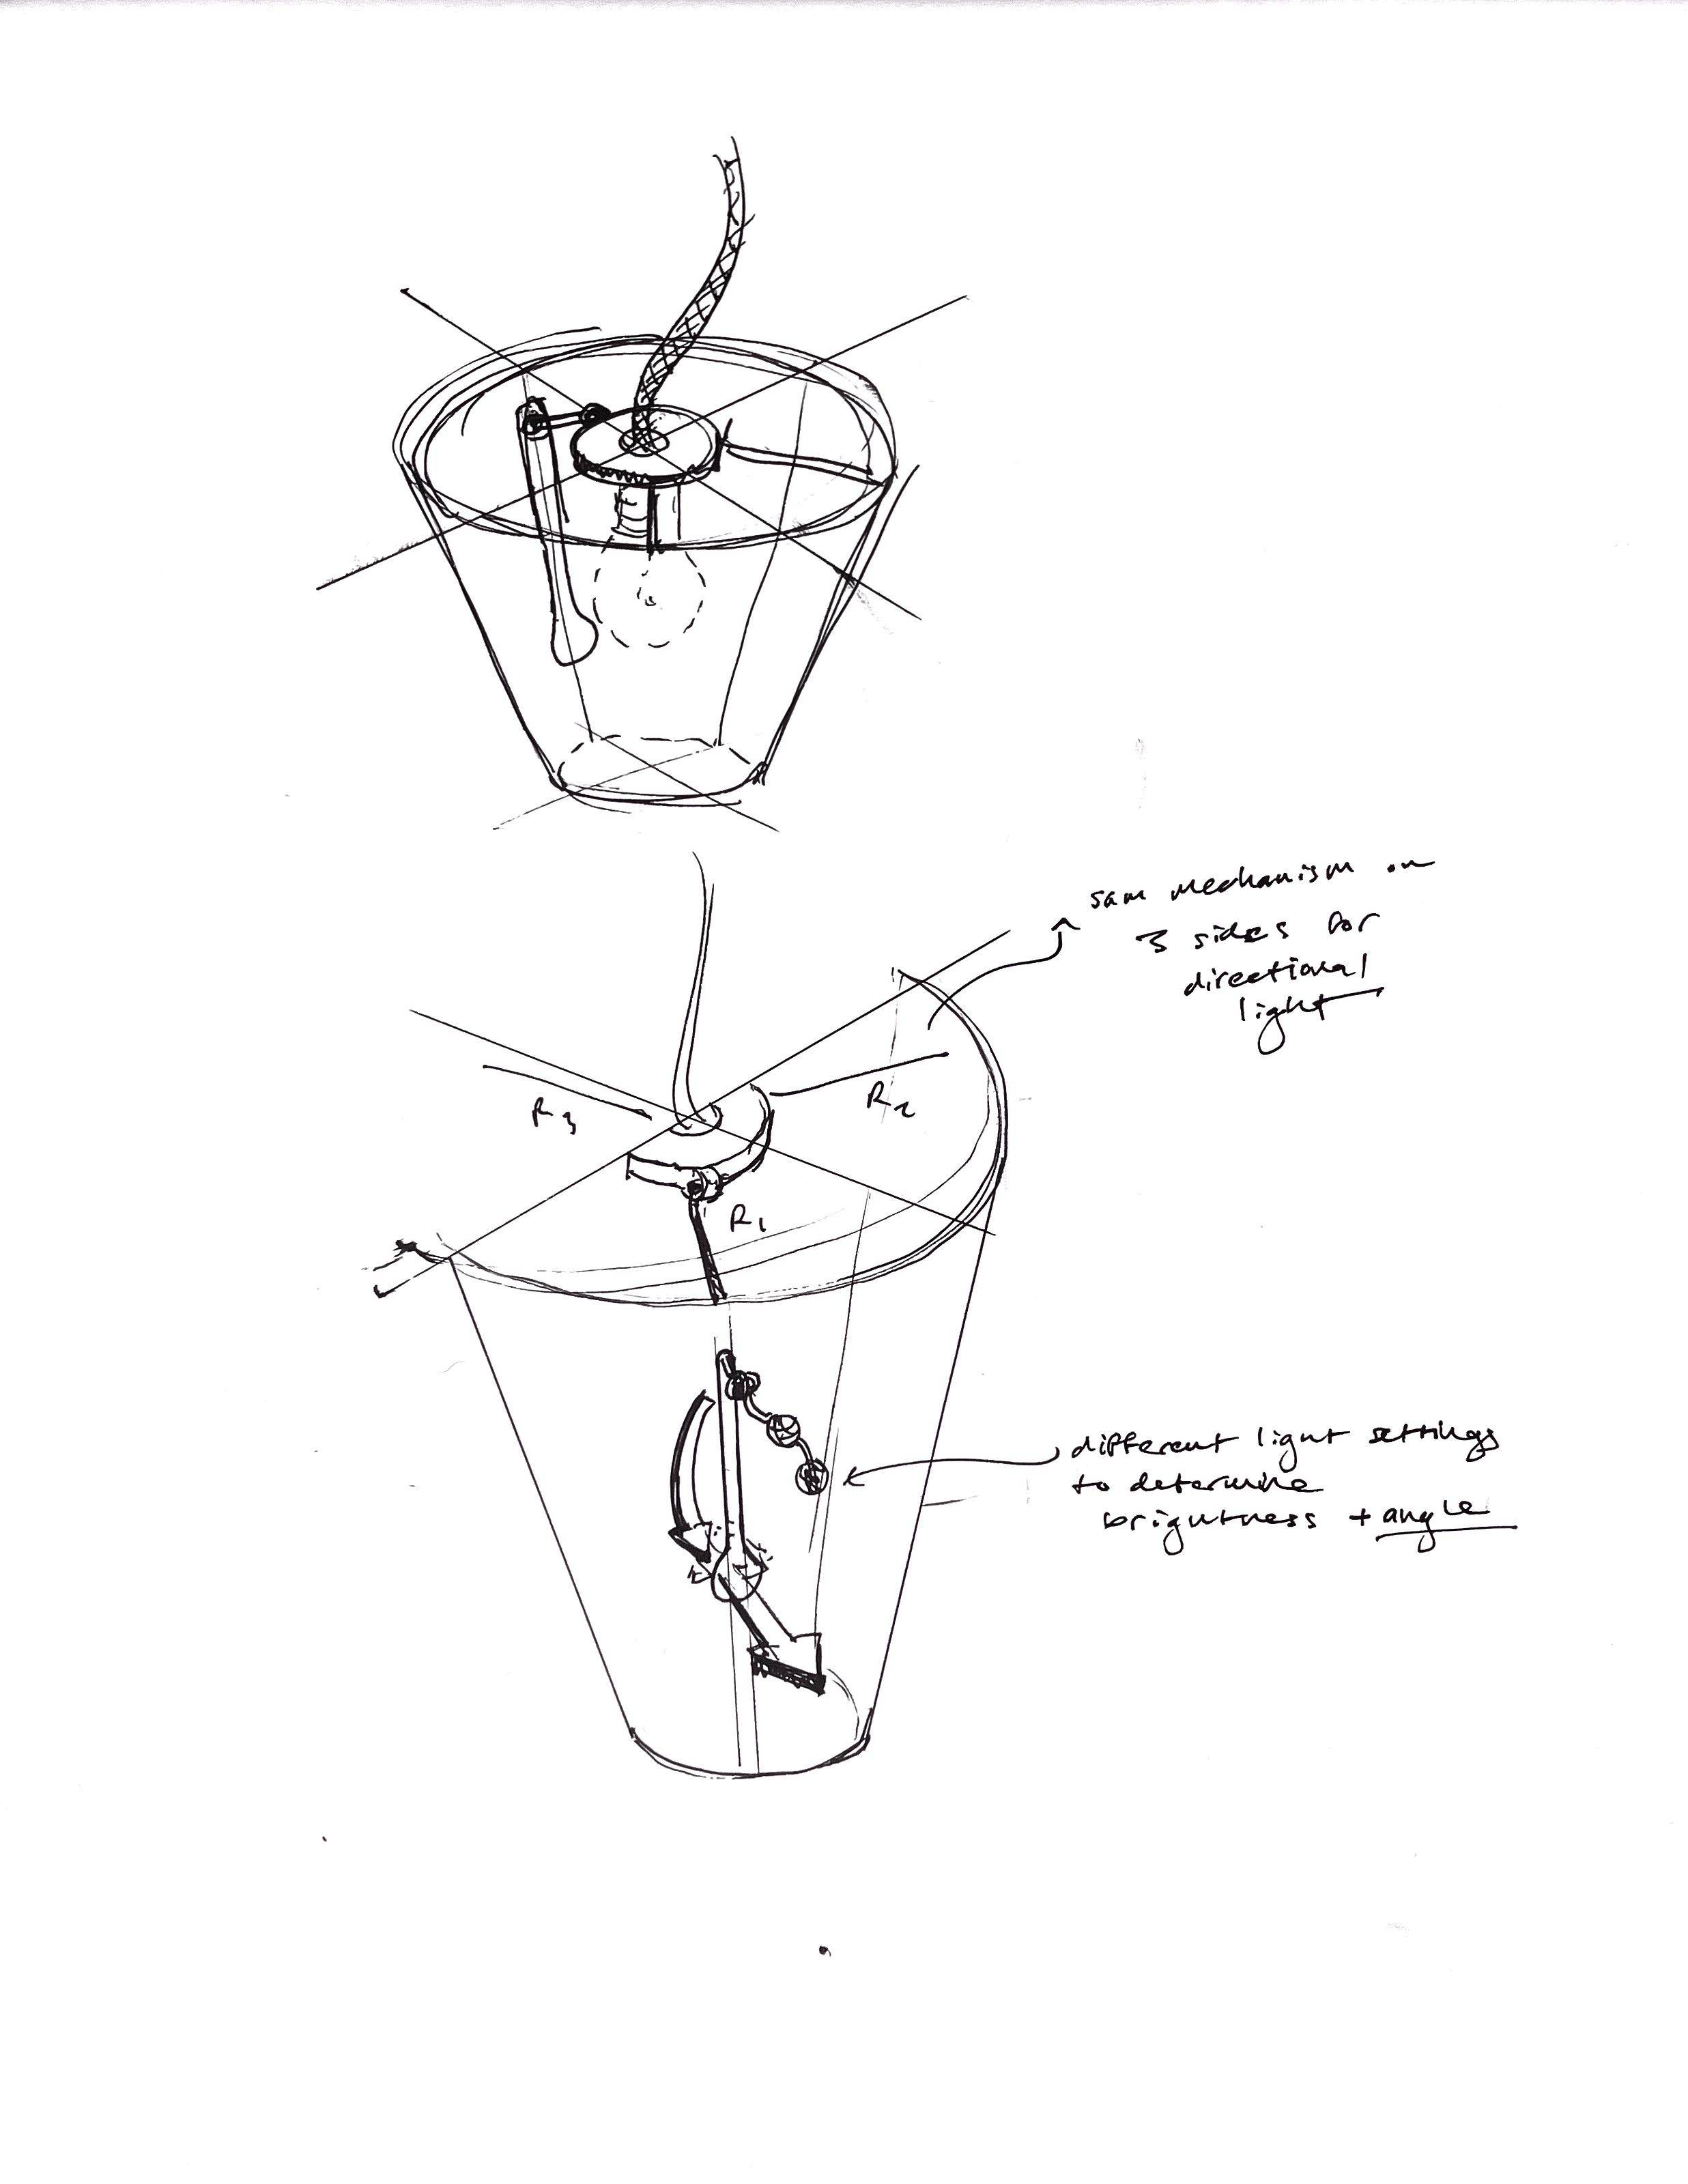 sam mechanism on
3 sides for
directional
light
R3
R2
R1
different light settings
to determine
brightness + angle